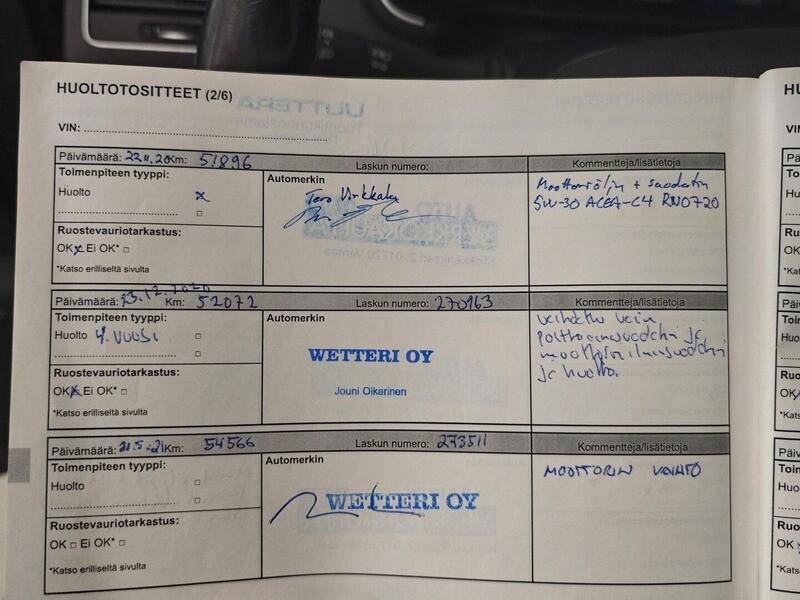 HUOLTOTOSITTEET (2/6)
VIN:
Päivämäärä: 22.11.20 Km: 51896 Laskun numero: Kommentteja/lisätietoja
Toimenpiteen tyyppi:
Huolto x
Ruostevauriotarkastus:
OK x Ei OK* □
*Katso erilliseltä sivulta
Automerkin
Tero Virkkala
Moottoriöljyn + suodatin
5W-30 ACEA-C4 RN0720
Päivämäärä: 23.12.2020 Km: 52072 Laskun numero: 270963 Kommentteja/lisätietoja
Toimenpiteen tyyppi:
Huolto 4. VUOSI □
Ruostevauriotarkastus:
OK x Ei OK* □
*Katso erilliseltä sivulta
Automerkin
WETTERI OY
Jouni Oikarinen
vaihdettu vain
polttoainesuodatin ja
moottorin ilmansuodatin
ja huolto.
Päivämäärä: 21.5.-21 Km: 54566 Laskun numero: 273511 Kommentteja/lisätietoja
Toimenpiteen tyyppi:
Huolto □
Ruostevauriotarkastus:
OK □ Ei OK* □
*Katso erilliseltä sivulta
Automerkin
WETTERI OY
MOOTTORIN VAIHTO